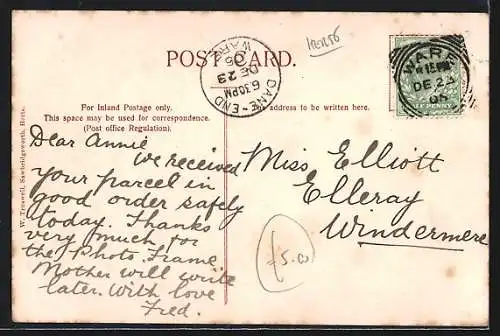 POST CARD.
WARE
8.15PM
DE 23
HALFPENNY
DANE-END
WARE
6.30PM
DE 23
05
For Inland Postage only.
This space may be used for correspondence.
(Post office Regulation).
The address to be written here.
W. Triswell, Sawbridgeworth, Herts.
Dear Annie
We received
your parcel in
good order safely
today. Thanks
very much for
the Photo. Frame
Mother will write
later. With love
Fred.
Miss Elliott
Elleray
Windermere
£5.00